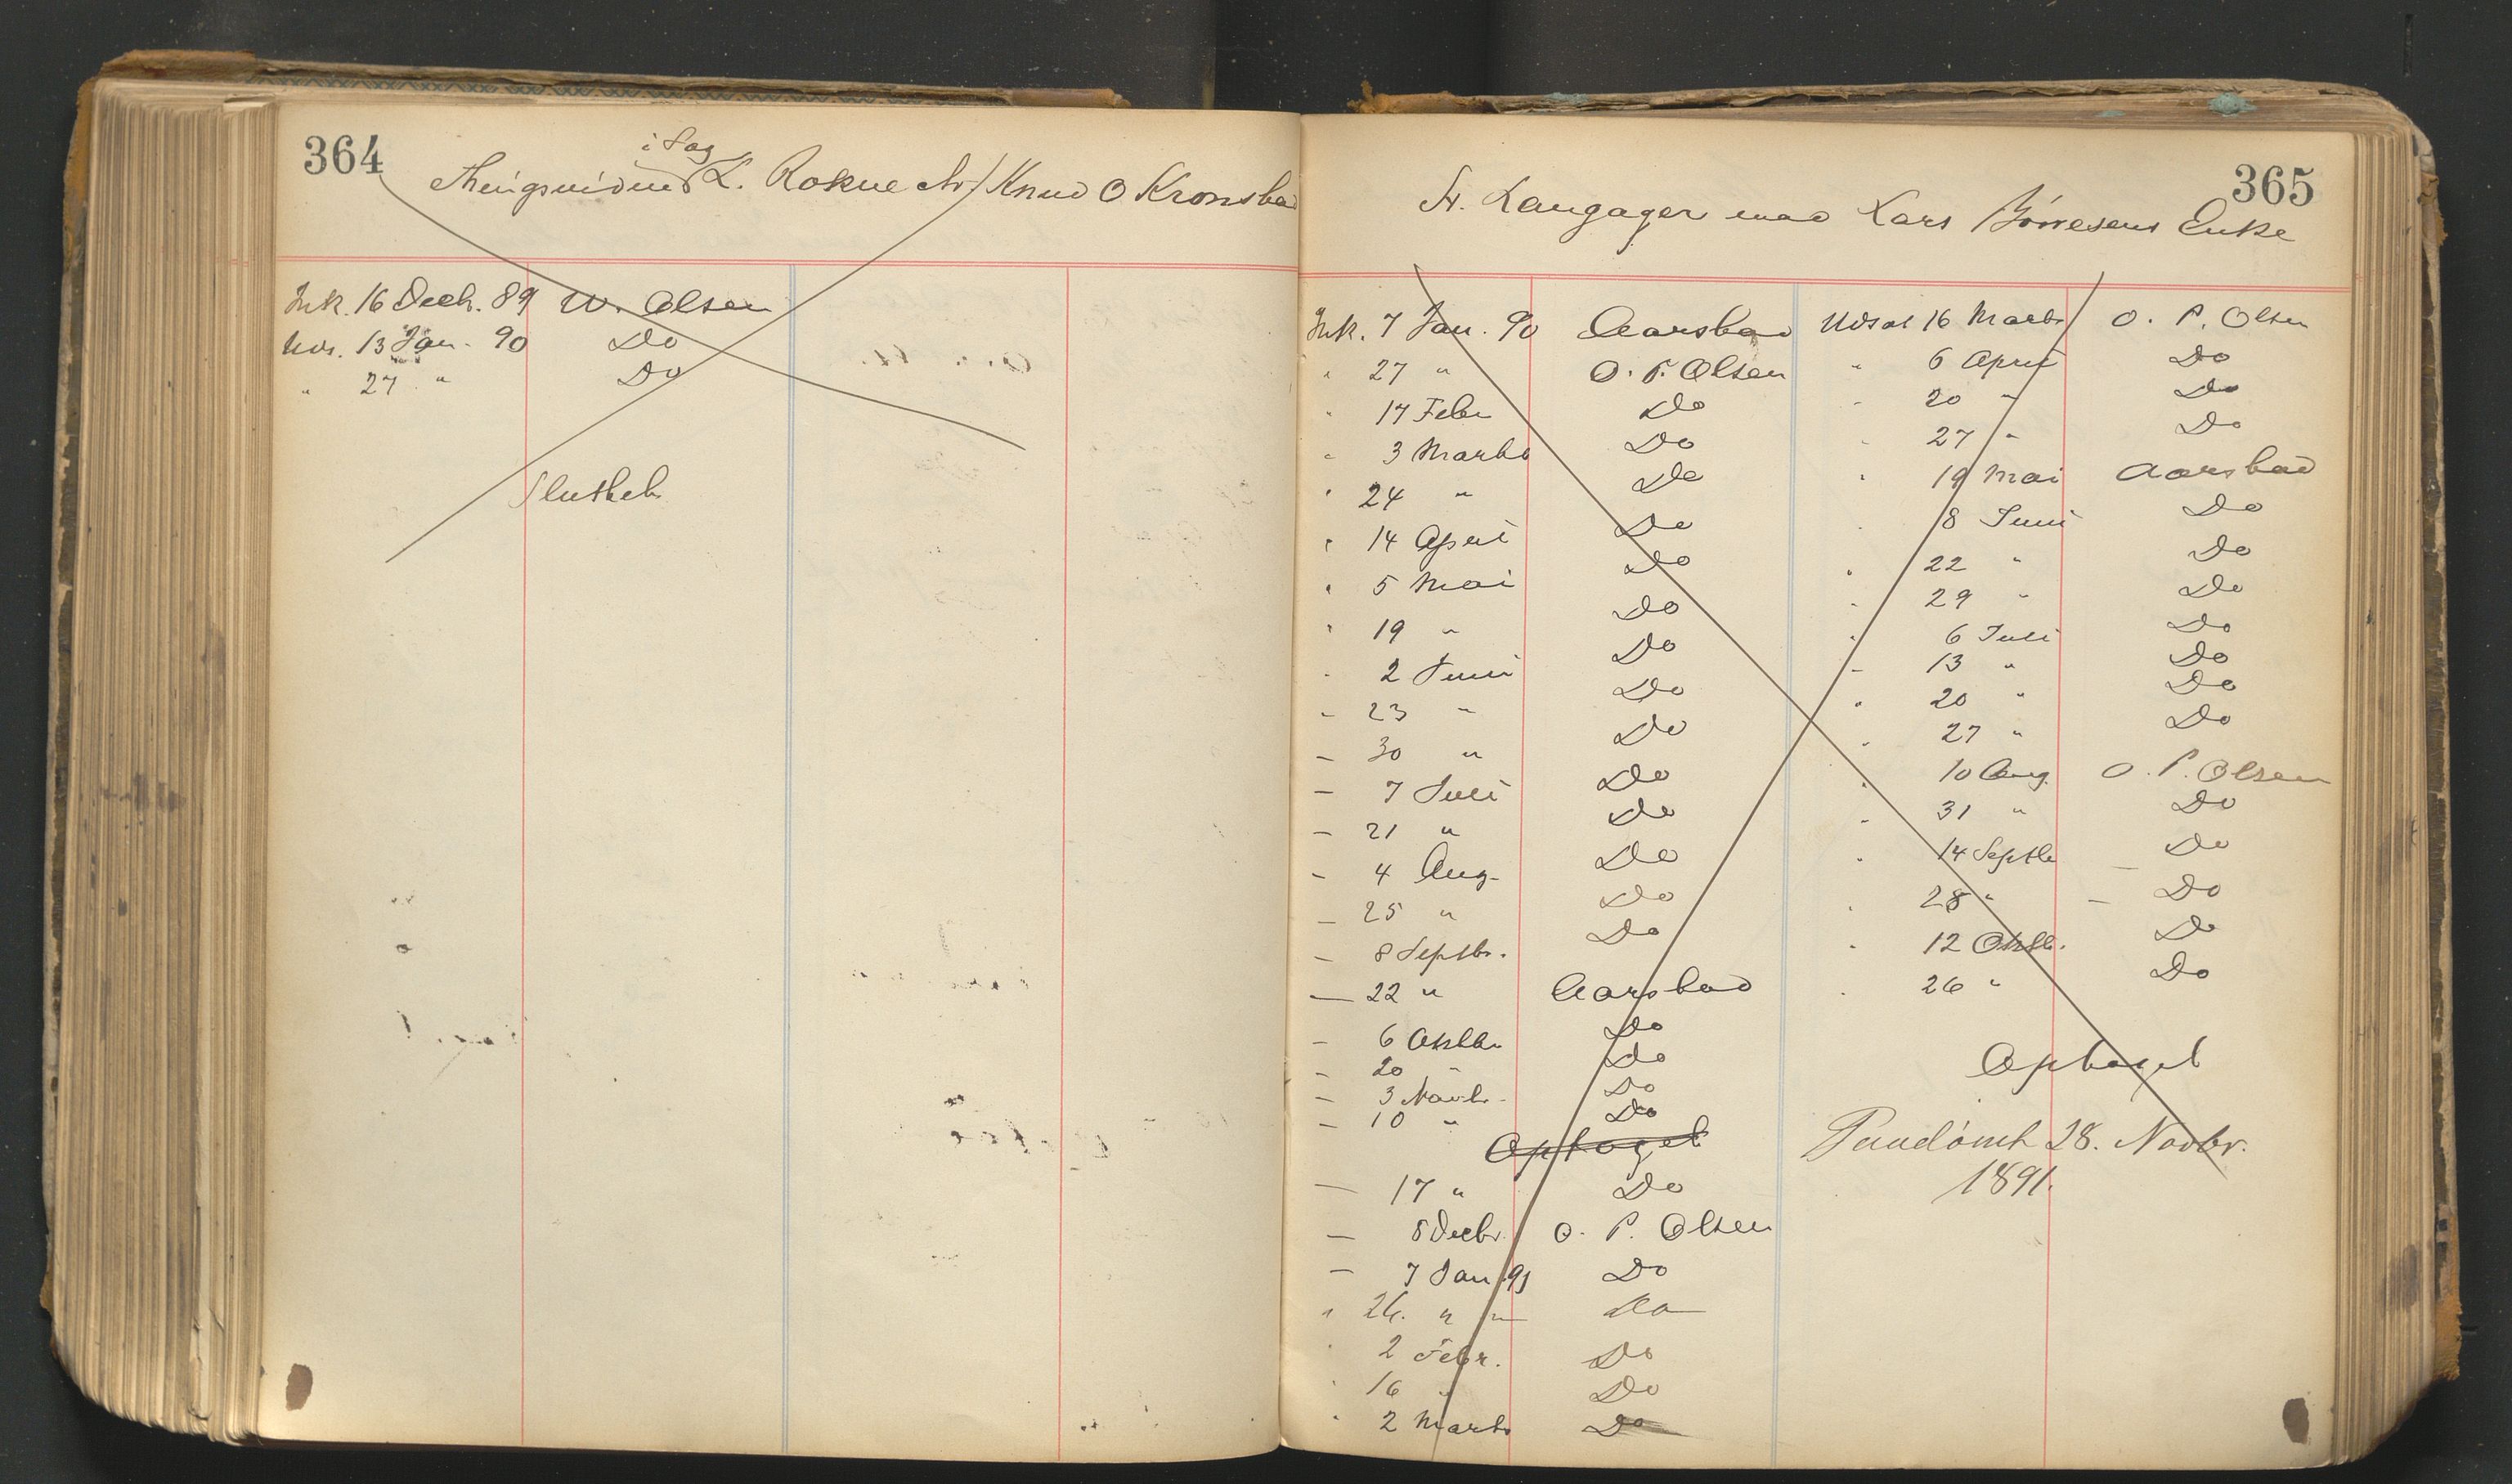 364
i Sag
Thingsvidne L. Rokne ctr/ Knud O Kronstad
Ink. 16 Decb. 89 W. Olsen
Uds. 13 Jan. 90 Do
" 27 " Do
Sluttet
365
N. Langager mod Lars Børresens Enke
Ink. 7 Jan. 90 Aarstad
" 27 " O. P. Olsen
" 17 Febr Do
" 3 Marts Do
" 24 " Do
" 14 April Do
" 5 Mai Do
" 19 " Do
" 2 Juni Do
- 23 " Do
- 30 " Do
- 7 Juli Do
- 21 " Do
- 4 Aug. Do
- 25 " Do
- 8 Septbr. Do
- 22 " Aarstad
- 6 Oktbr Do
- 20 " Do
- 3 Novbr. Do
- 10 " Do
Optaget
- 17 " Do
- 8 Decbr. O. P. Olsen
- 7 Jan 91 Do
" 26. " " Do
" 2 Febr. Do
" 16 " Do
" 2 Marts Do
Udsat 16 Marts O. P. Olsen
" 6 April Do
" 20 " Do
" 27 " Do
" 19 Mai Aarstad
" 8 Juni Do
" 22 " Do
" 29 " Do
" 6 Juli Do
- 13 " Do
" 20 " Do
" 27 " Do
" 10 Aug. O. P. Olsen
" 31 " Do
" 14 Septbr Do
" 28 " Do
" 12 Oktb. Do
" 26 " Do
Optaget
Paadømt 28. Novbr.
1891.